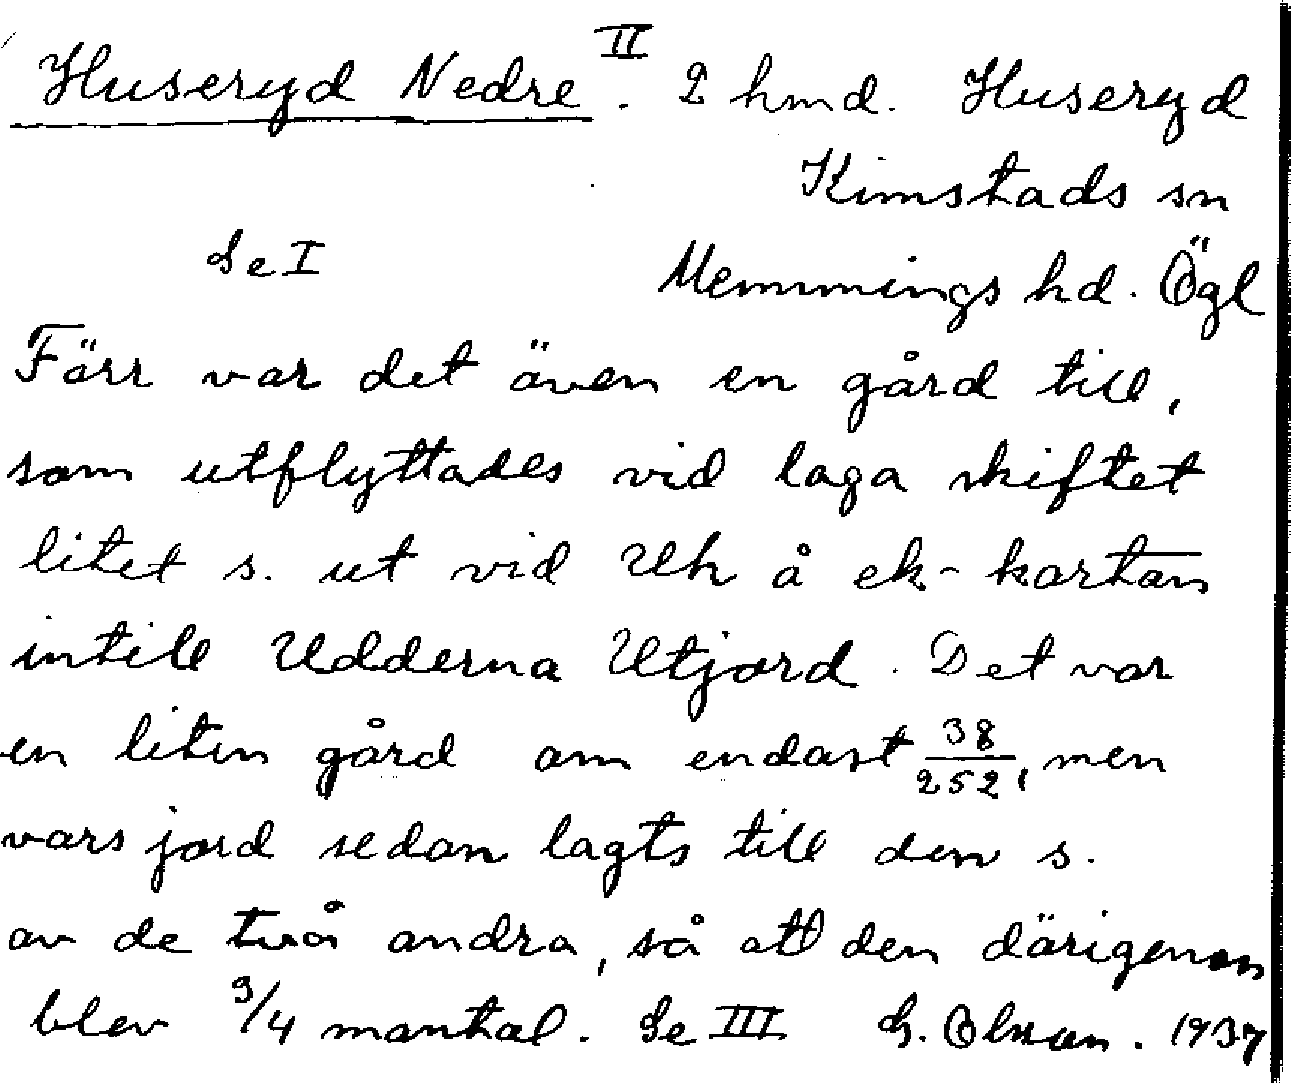 Huseryd Nedre II. 2 hmd. Huseryd
Kimstads sn
Se I Memmings hd. Ögl
Förr var det även en gård till,
som utflyttades vid laga skiftet
litet s. ut vid Uh å ek-kartan
intill Udderna Utjord. Det var
en liten gård om endast 38/252, men
vars jord sedan lagts till den s.
av de två andra, så att den därigenom
blev 3/4 mantal. Se III G. Olsson. 1937